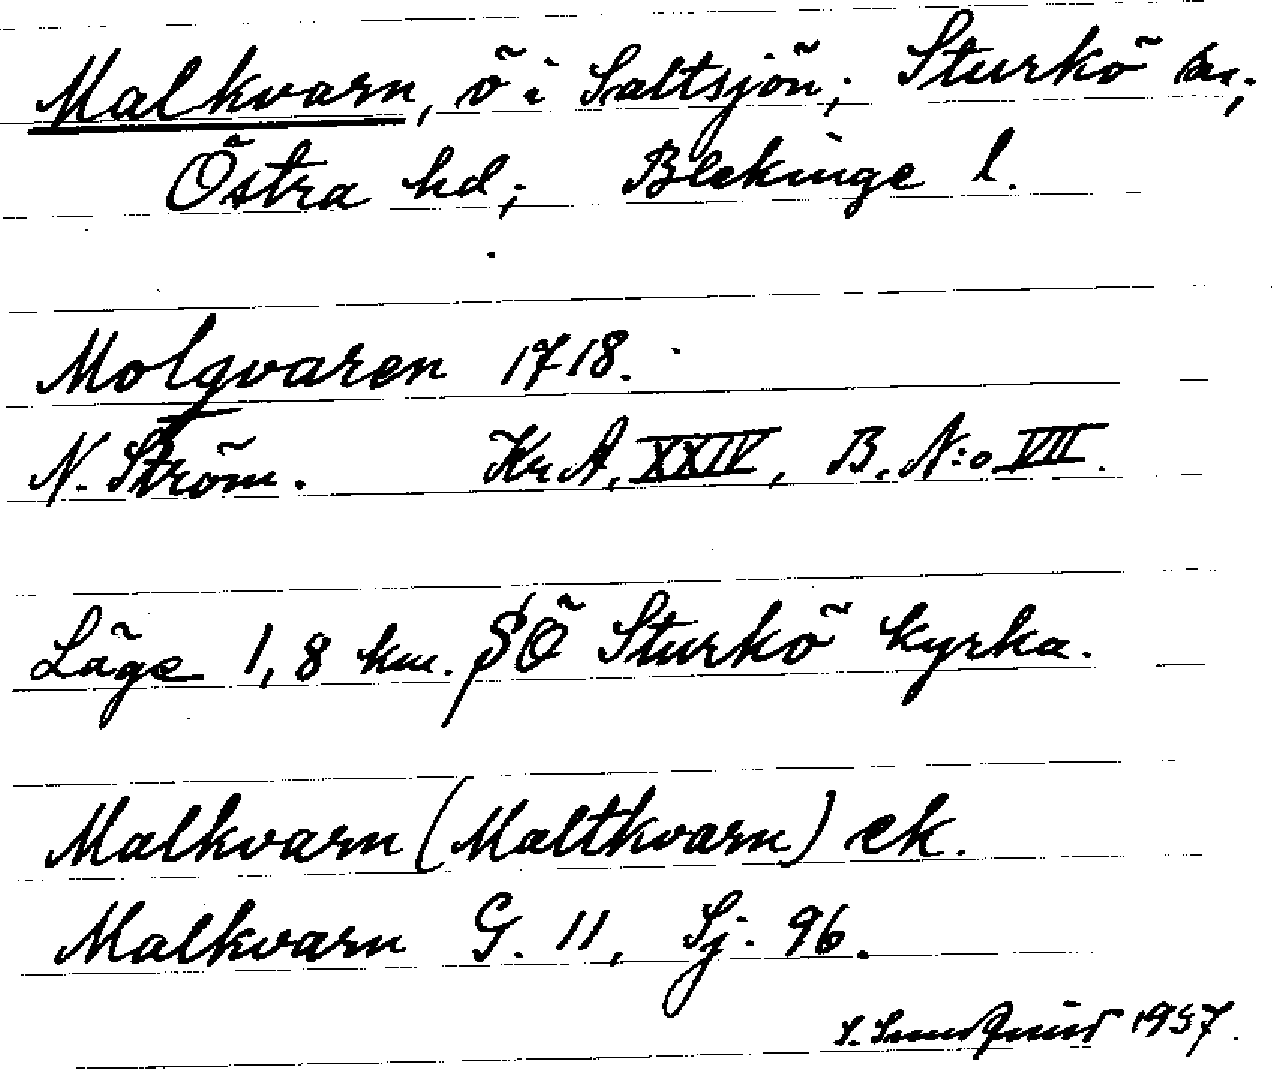 Malkvarn, ö i Saltsjön; Sturkö sn;
Östra hd; Blekinge l.
Molqvaren 1718.
N. Ström. Kr A, XXIV, B. N:o VII.
Läge 1,8 km. SÖ Sturkö kyrka.
Malkvarn (Maltkvarn) ek.
Malkvarn G. 11, Sj. 96.
1957.